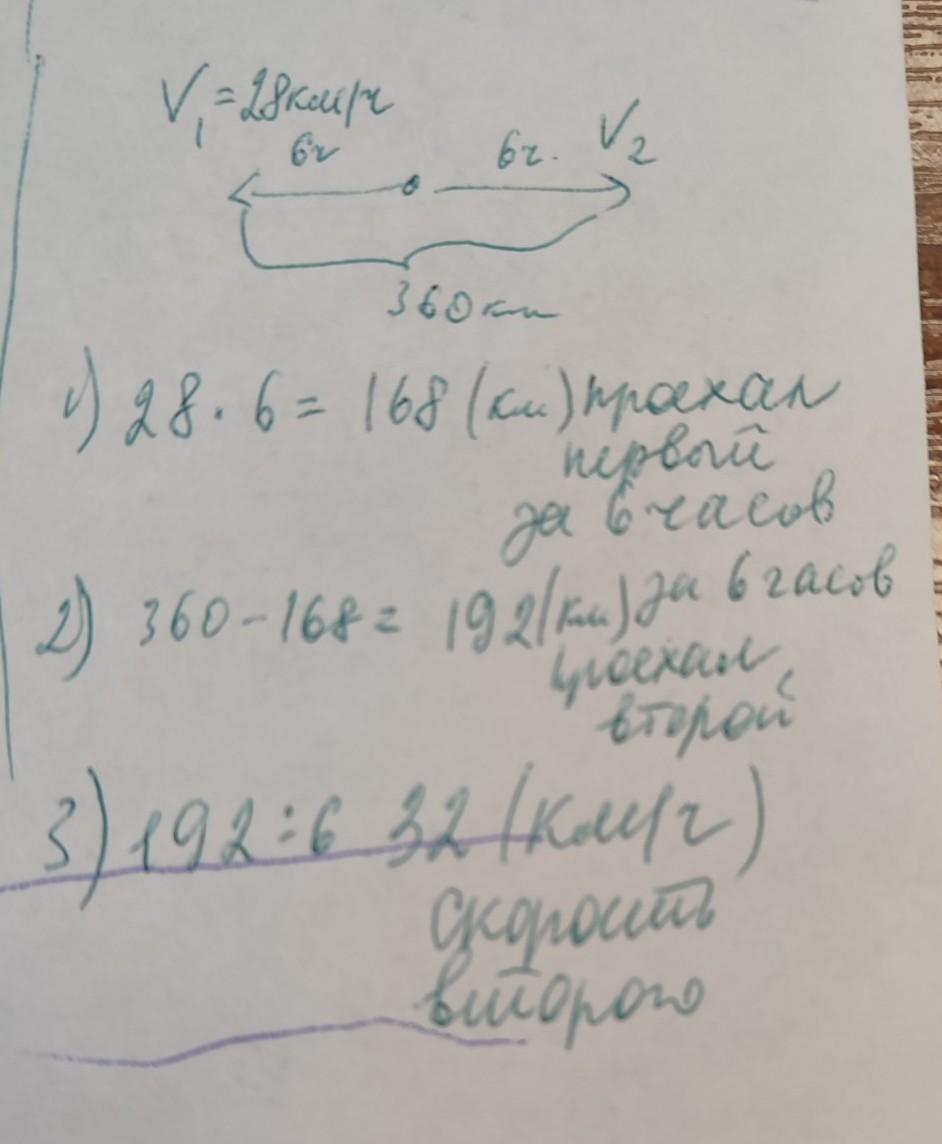 V₁ = 28км/ч
6ч 6ч. V₂
360 км
1) 28 · 6 = 168 (км) проехал
первый
за 6 часов
2) 360 - 168 = 192 (км) за 6 часов
проехал
второй
3) 192 : 6 32 (км/ч)
скорость
второго